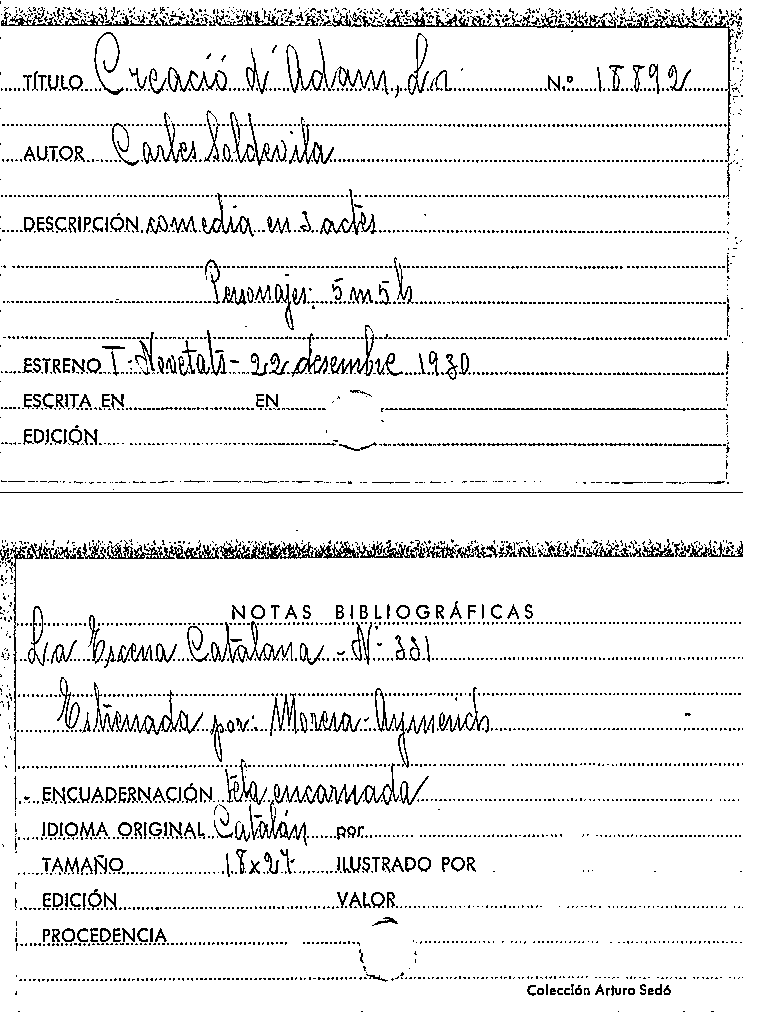 TÍTULO Creació d'Adam, La N.º 18892
AUTOR Carles Soldevila
DESCRIPCIÓN comedia en 3 actes
Personajes: 5 m 5 h
ESTRENO T. Novetats - 22 desembre 1930
ESCRITA EN EN
EDICIÓN
NOTAS BIBLIOGRÁFICAS
La Escena Catalana - Nº 331
Estrenada por: Morera-Aymerich
ENCUADERNACIÓN tela encarnada
IDIOMA ORIGINAL Catalán por
TAMAÑO 18x27 ILUSTRADO POR
EDICIÓN VALOR
PROCEDENCIA
Colección Arturo Sedó